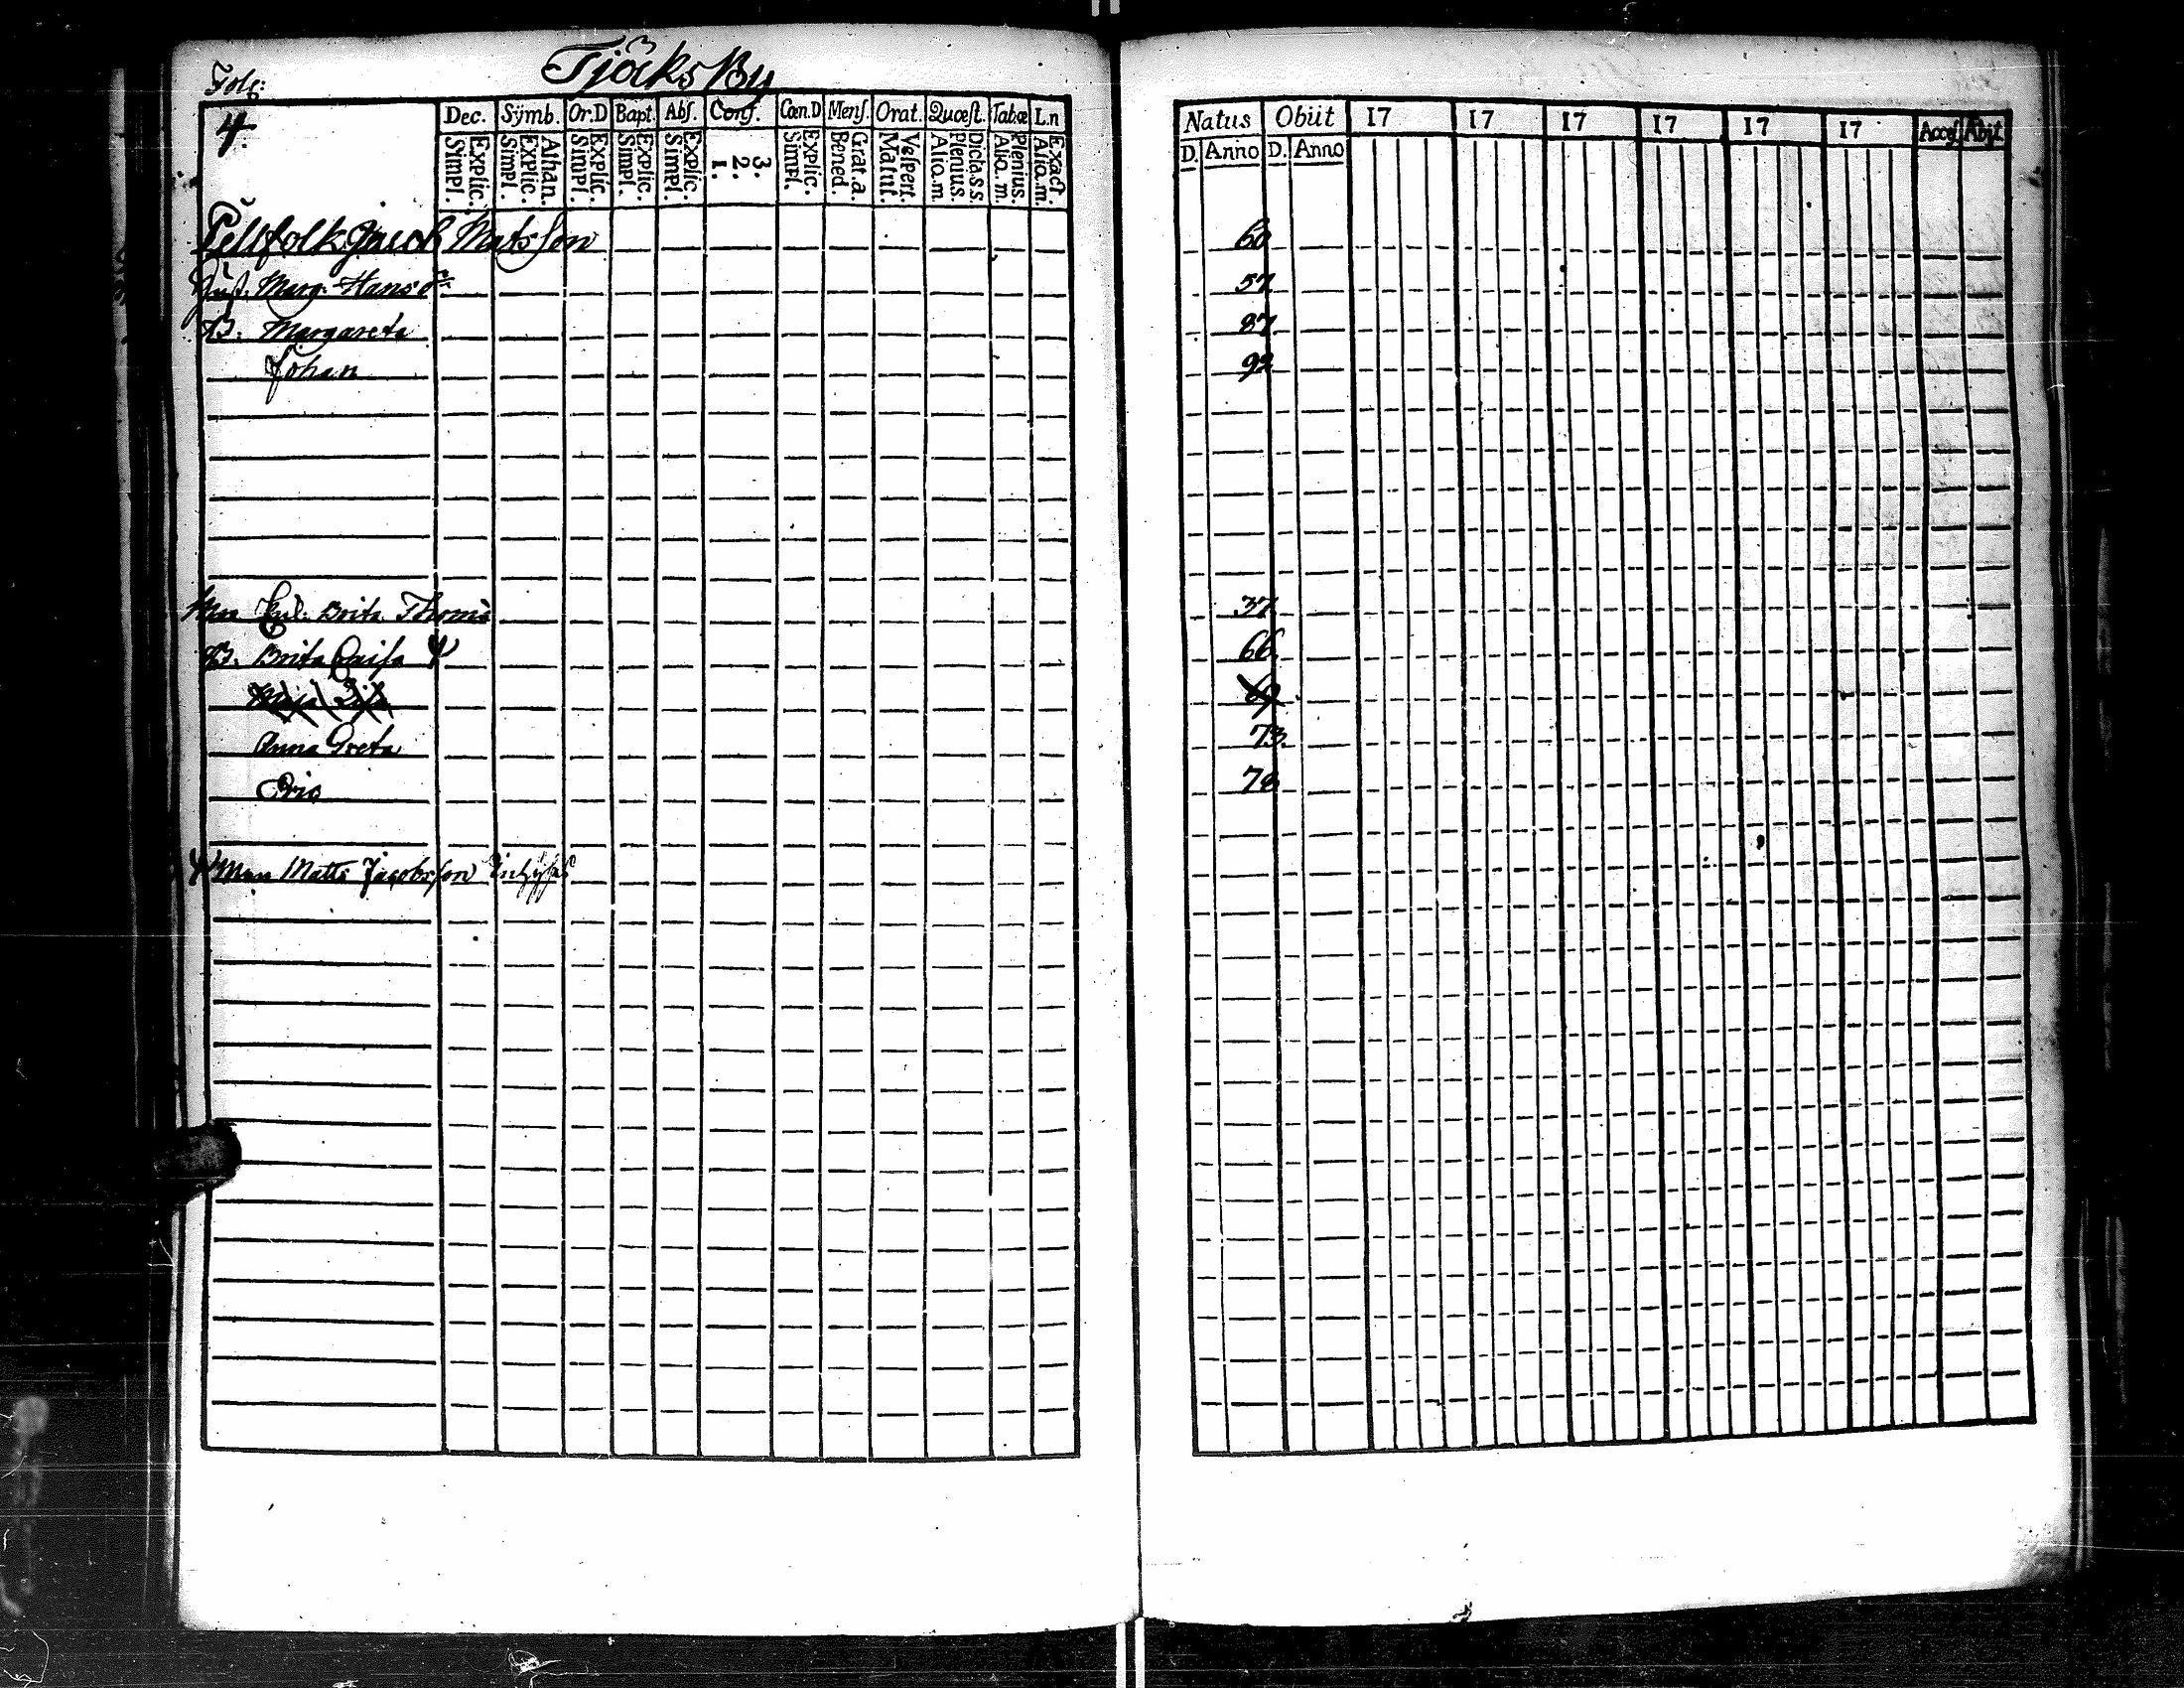 Tjöck By
Fol:
4.
Dec. Sÿmb. Or.D Bapt. Abſ. Conf. Cœn.D Menſ. Orat. Quœſt. Tabœ L.n
Simpl. Explic. Simpl. Explic. Athan. Simpl. Explic. Simpl. Explic. Simpl. Explic. 1. 2. 3. Simpl. Explic. Bened. Grat.a. Matut. Veſpert. Alio.m Plenius. Dicta.s.s Alio.m. Plenius. Alio.m. Exact.
Natus Obiit 17 17 17 17 17 17 Acceſ. Abjt.
D. Anno D. Anno
Pellfolk Jacob Matsſon 60
Hust. Marg. Hansdr 57
B. Margareta 87
Johan 92
Brita Thoms 37
B. Brita Caiſa 66
Maja Liſa 69
Anna Greta 73
Eric 78
Man Matts Jacobsſon